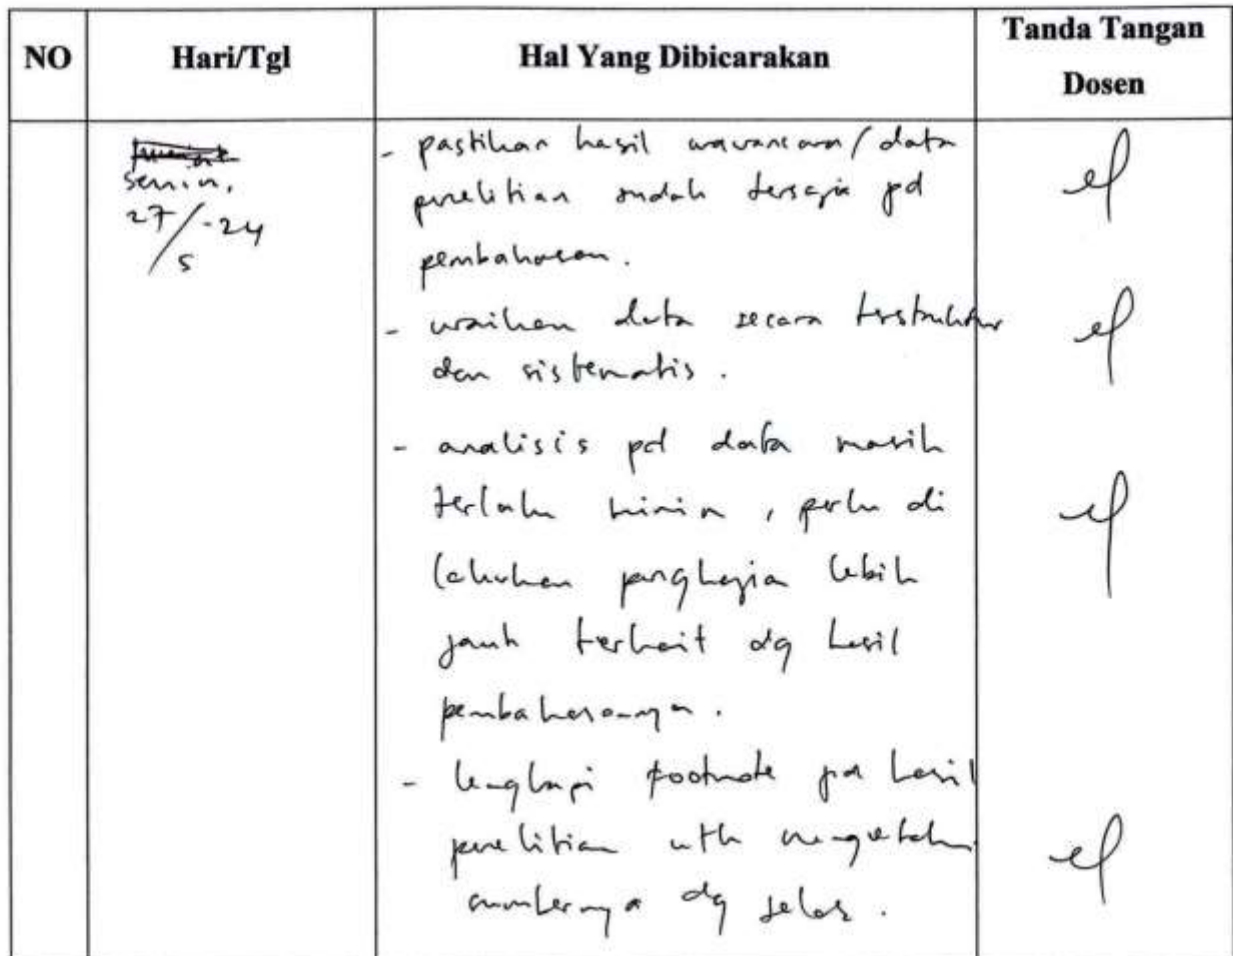 NO Hari/Tgl Hal Yang Dibicarakan Tanda Tangan
Dosen
Senin,
27/5-24
- pastikan hasil wawancara/data
penelitian sudah tersaji pd
pembahasan.
- uraikan data secara terstruktur
dan sistematis.
- analisis pd data masih
terlalu minim, perlu di
lakukan pengkajian lebih
jauh terkait dg hasil
pembahasannya.
- lengkapi footnote pd hasil
penelitian utk mengetahui
sumbernya dg jelas.